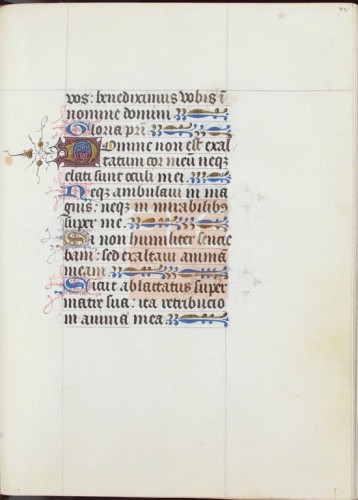 vos: benediximus vobis ī
nomine domini
Gloria prī
Domine non est exal
tatum cor meū neqꝫ
elati sunt oculi mei
Neqꝫ ambulavi in ma
gnis: neqꝫ in mirabilibꝰ
super me
Si non humiliter sencie
bam: sed exaltavi animā
meam
Sicut ablactatus super
matre sua: ita retribucio
in anima mea